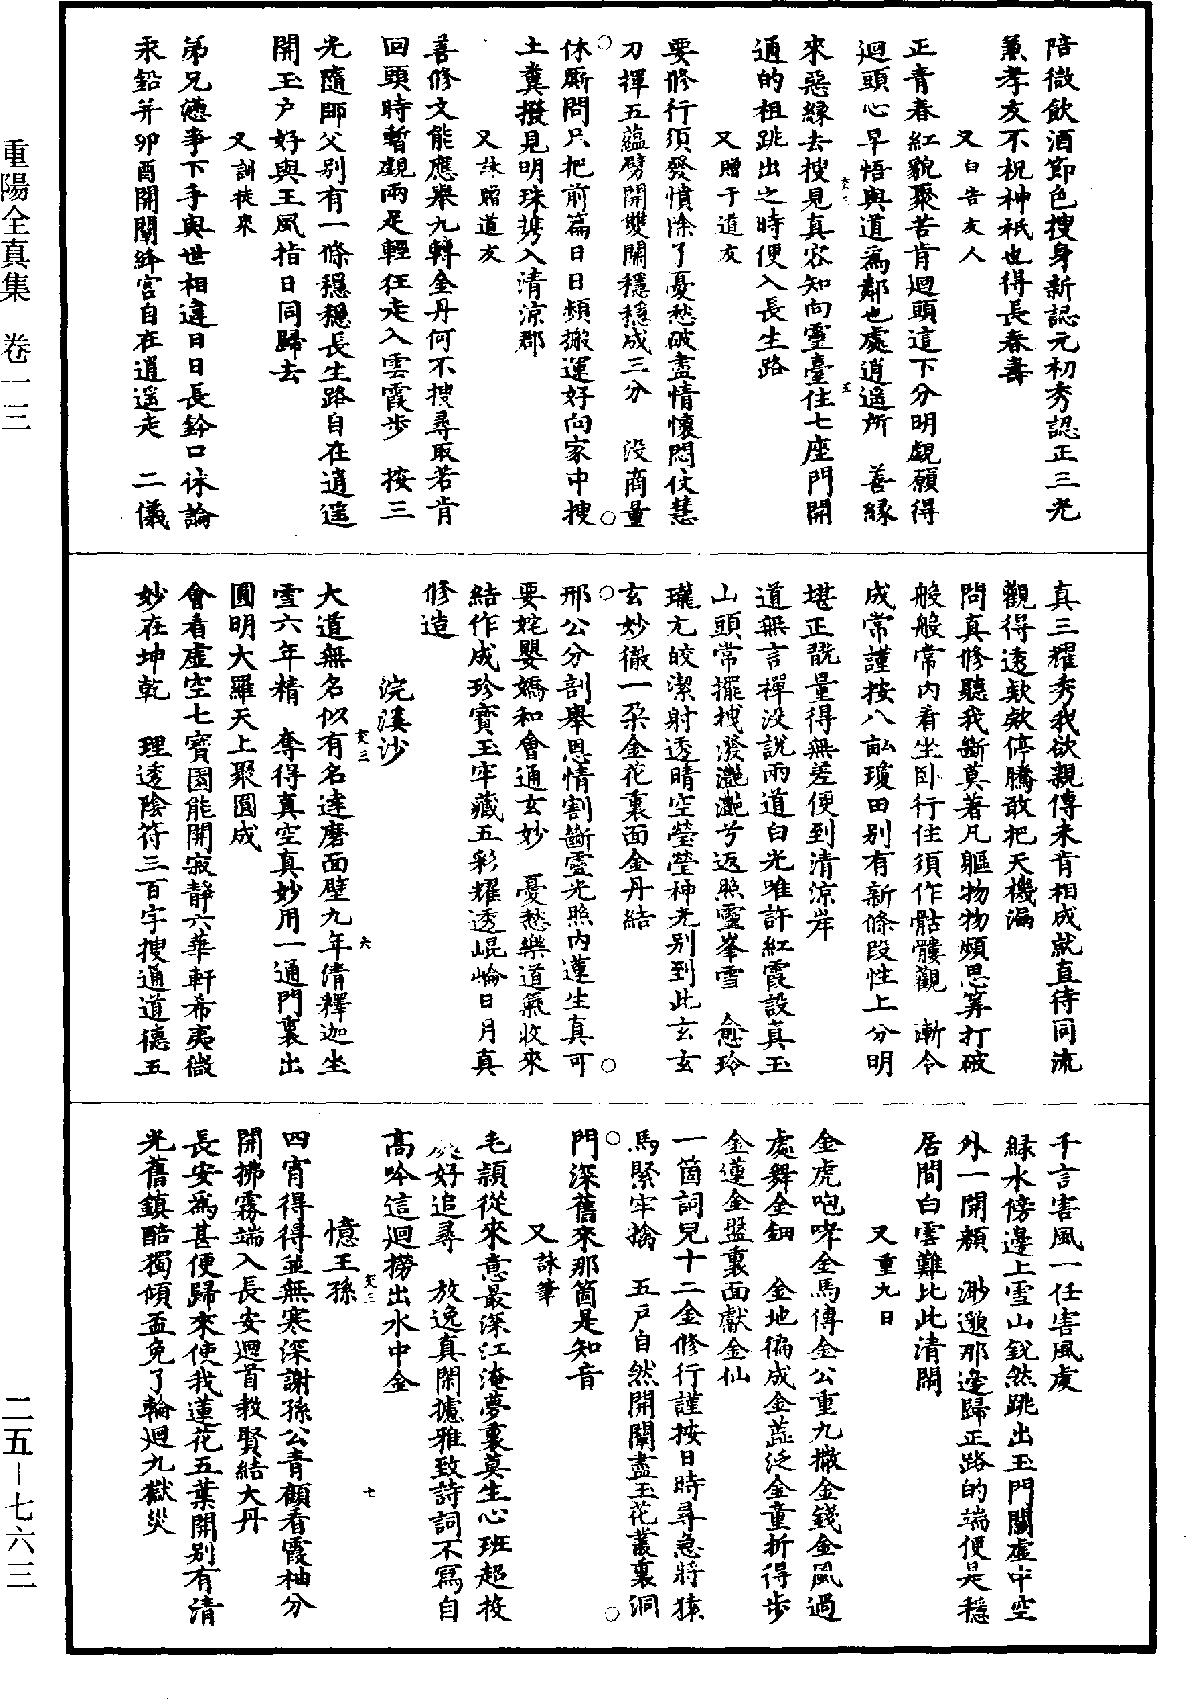 重陽全真集　卷一三
二五－七六三
陪微飲酒節色搜身新認元初秀認正三光
兼孝友不祝神祇也得長春壽
又白告友人
正青春紅貌聚苦肯迴頭這下分明覷願得
迴頭心早悟與道爲鄰也處逍遥所　善緣
來惡緣去搜見真容知向靈臺住七座門開
通的祖跳出之時便入長生路
又贈于道友
要修行須發憤滌了憂愁破盡情懷悶仗慧
刀揮五蘊劈開雙關穩穩成三分　没商量
休厮問只把前篇日日頻搬運好向家中搜
土糞撥見明珠携入清涼郡
又詠贈道友
善修文能應舉九轉金丹何不搜尋取若肯
回頭時暫覷兩足輕狂走入雲霞步　按三
光隨師父别有一條穩穩長生路自在逍遥
開玉户好與王風指日同歸去
又訓徒衆
弟兄憑爭下手與世相違日日長鈐口休論
汞鉛并卯酉開闡絳宮自在逍遥走　二儀
真三耀秀我欲親傳未肯相成就直待同流
觀得透欵欵停騰敢把天機漏
問真修聽我斷莫著凡軀物物頻思筭打破
般般常内看坐卧行住須作骷髏觀　漸令
成常謹按八䣊瓊田别有新條段性上分明
堪正翫量得無差便到清涼岸
道無言禪没說兩道白光唯許紅霞設真玉
山頭常擺拽潑灔灔兮返照靈峯雪　愈玲
瓏尢皎潔射透晴空瑩瑩神光别到此玄玄
玄妙徹一朶金花裏面金丹結
那公分剖舉恩情割斷靈光照内蓮生真可
要姹嬰嬀和會通玄妙　憂愁樂道氣收來
結作成珍寶玉牢藏五彩耀透崐崘日月真
修造
浣溪沙
大道無名似有名達磨面壁九年清釋迦坐
雪六年精　奪得真空真妙用一通門裏出
圓明大羅天上聚圓成
會看虚空七寶園能開寂靜六華軒希夷微
妙在坤乾　理透陰符三百字搜通道德五
千言害風一任害風虔
緑水傍邊上雪山銳然跳出玉門關虚中空
外一開顏　渺邈那邊歸正路的端便是穩
居閒白雲難比此清閑
又重九日
金虎咆哮金馬傳金公重九撒金錢金風過
處舞金鈿　金地徧成金蘂泛金童折得步
金蓮金盤裏面獻金仙
一箇詞兒十二金修行謹按日時尋急將猿
馬緊牢擒　五户自然開闡盡玉花叢裏洞
門深舊來那箇是知音
又詠筆
毛頴從來意最深江淹夢裏莫生心班超投
處好追尋　放逸真閑攄雅致詩詞不寫自
高吟這迴撈出水中金
憶王孫
四宵得得並無寒深謝孫公青顧看霞袖分
開拂霧端入長安迴首教賢結大丹
長安爲甚便歸來使我蓮花五葉開别有清
光舊鎮酷獨傾盃免了輪迴九獄災